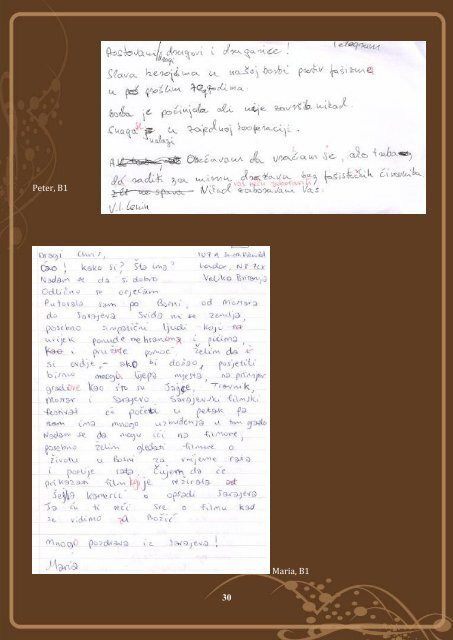 Telegram
Poštovani drugovi i drugarice!
dragi
Slava herojima u našoj borbi protiv fašizma
u prošlim godima.
Borba je počinjela ali nije završila nikad.
Snaga je u zajednoj kooperaciji.
nalazi
Obećavam da vraćam se, ako treba,
da raditi za mirnu državu bez fašističkih činovnika.
Nikad zaboravam vas.
V.I. Lenin
Peter, B1
Dragi Chris,
London, N7
Ćao! Kako si? Šta ima?
Velika Britanija
Nadam se da si dobro
Odlično se osjećam
Putovala sam po Bosni, od Mostara
do Sarajeva. Sviđa mi se zemlja,
posebno simpatični ljudi koji
uvijek ponude hranom i pićima,
i pružite pomoć. Želim da
si ovdje, - ako bi došao, posjetili
bismo mnogo lijepa mjesta, na primjer
gradove kao što su Jajce, Travnik,
Mostar i Sarajevo. Sarajevski filmski
festival će početi u petak pa
sam ima mnogo uzbuđenja u tom gradu
Nadam se da mogu ići na filmove,
posebno želim gledati filmove o
životu u Bosni za vrijeme rata
i poslije rata. Čujem da će
prikazan film koji je režirala
Šejla Kamerić o opsadi Sarajeva
Ja ću ti reći sve o filmu kad
se vidimo za Božić
Mnogo pozdrava iz Sarajeva!
Maria
Maria, B1
30